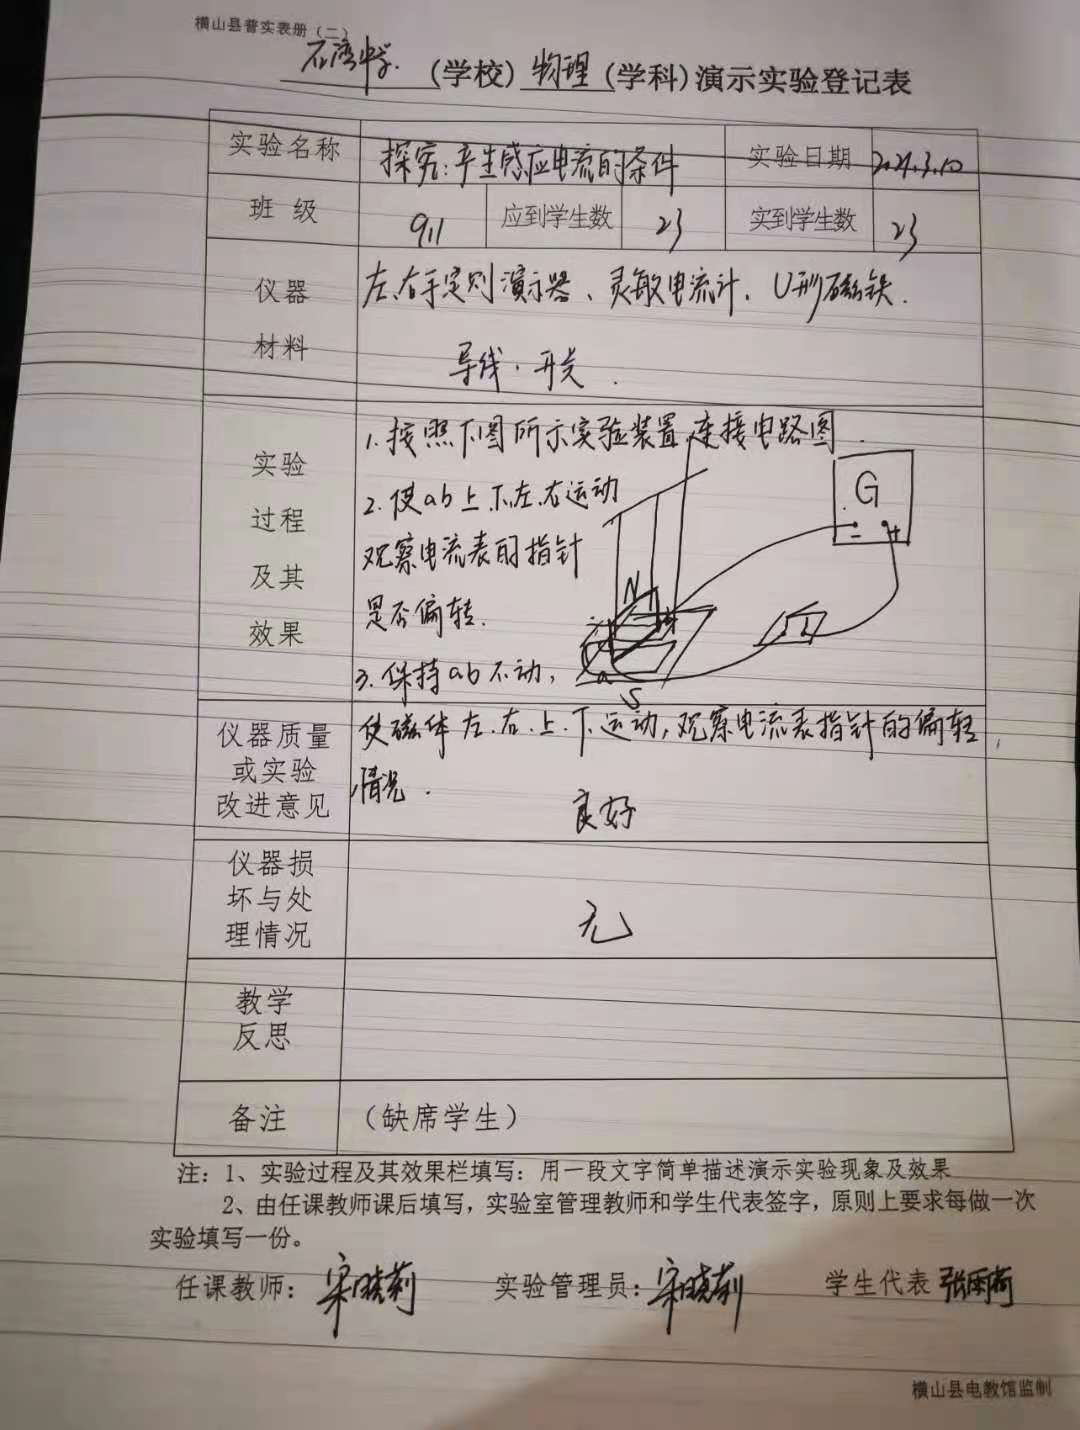 横山县普实表册（二）
石湾中学（学校）物理（学科）演示实验登记表
实验名称 探究：产生感应电流的条件 实验日期 2021.3.10
班级 911 应到学生数 23 实到学生数 23
仪器 左、右手定则演示器、灵敏电流计、U形磁铁.
材料 导线.开关.
实验 1.按照下图所示实验装置连接电路图.
过程 2.使ab上.下.左.右运动
及其 观察电流表的指针
效果 是否偏转.
3.保持ab不动，
G
- +
N
a
S
仪器质量 使磁体左.右.上.下运动，观察电流表指针的偏转
或实验 情况.
改进意见 良好
仪器损
坏与处 无
理情况
教学
反思
备注 （缺席学生）
注：1、实验过程及其效果栏填写：用一段文字简单描述演示实验现象及效果
2、由任课教师课后填写，实验室管理教师和学生代表签字，原则上要求每做一次
实验填写一份。
任课教师：宋晓莉 实验管理员：宋晓莉 学生代表
横山县电教馆监制